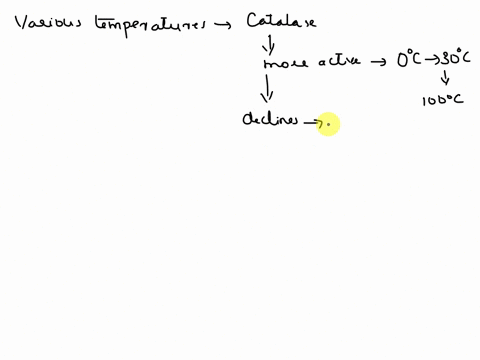 Various temperatures → Catalase
more active → 0°C → 30°C
100°C
declines →